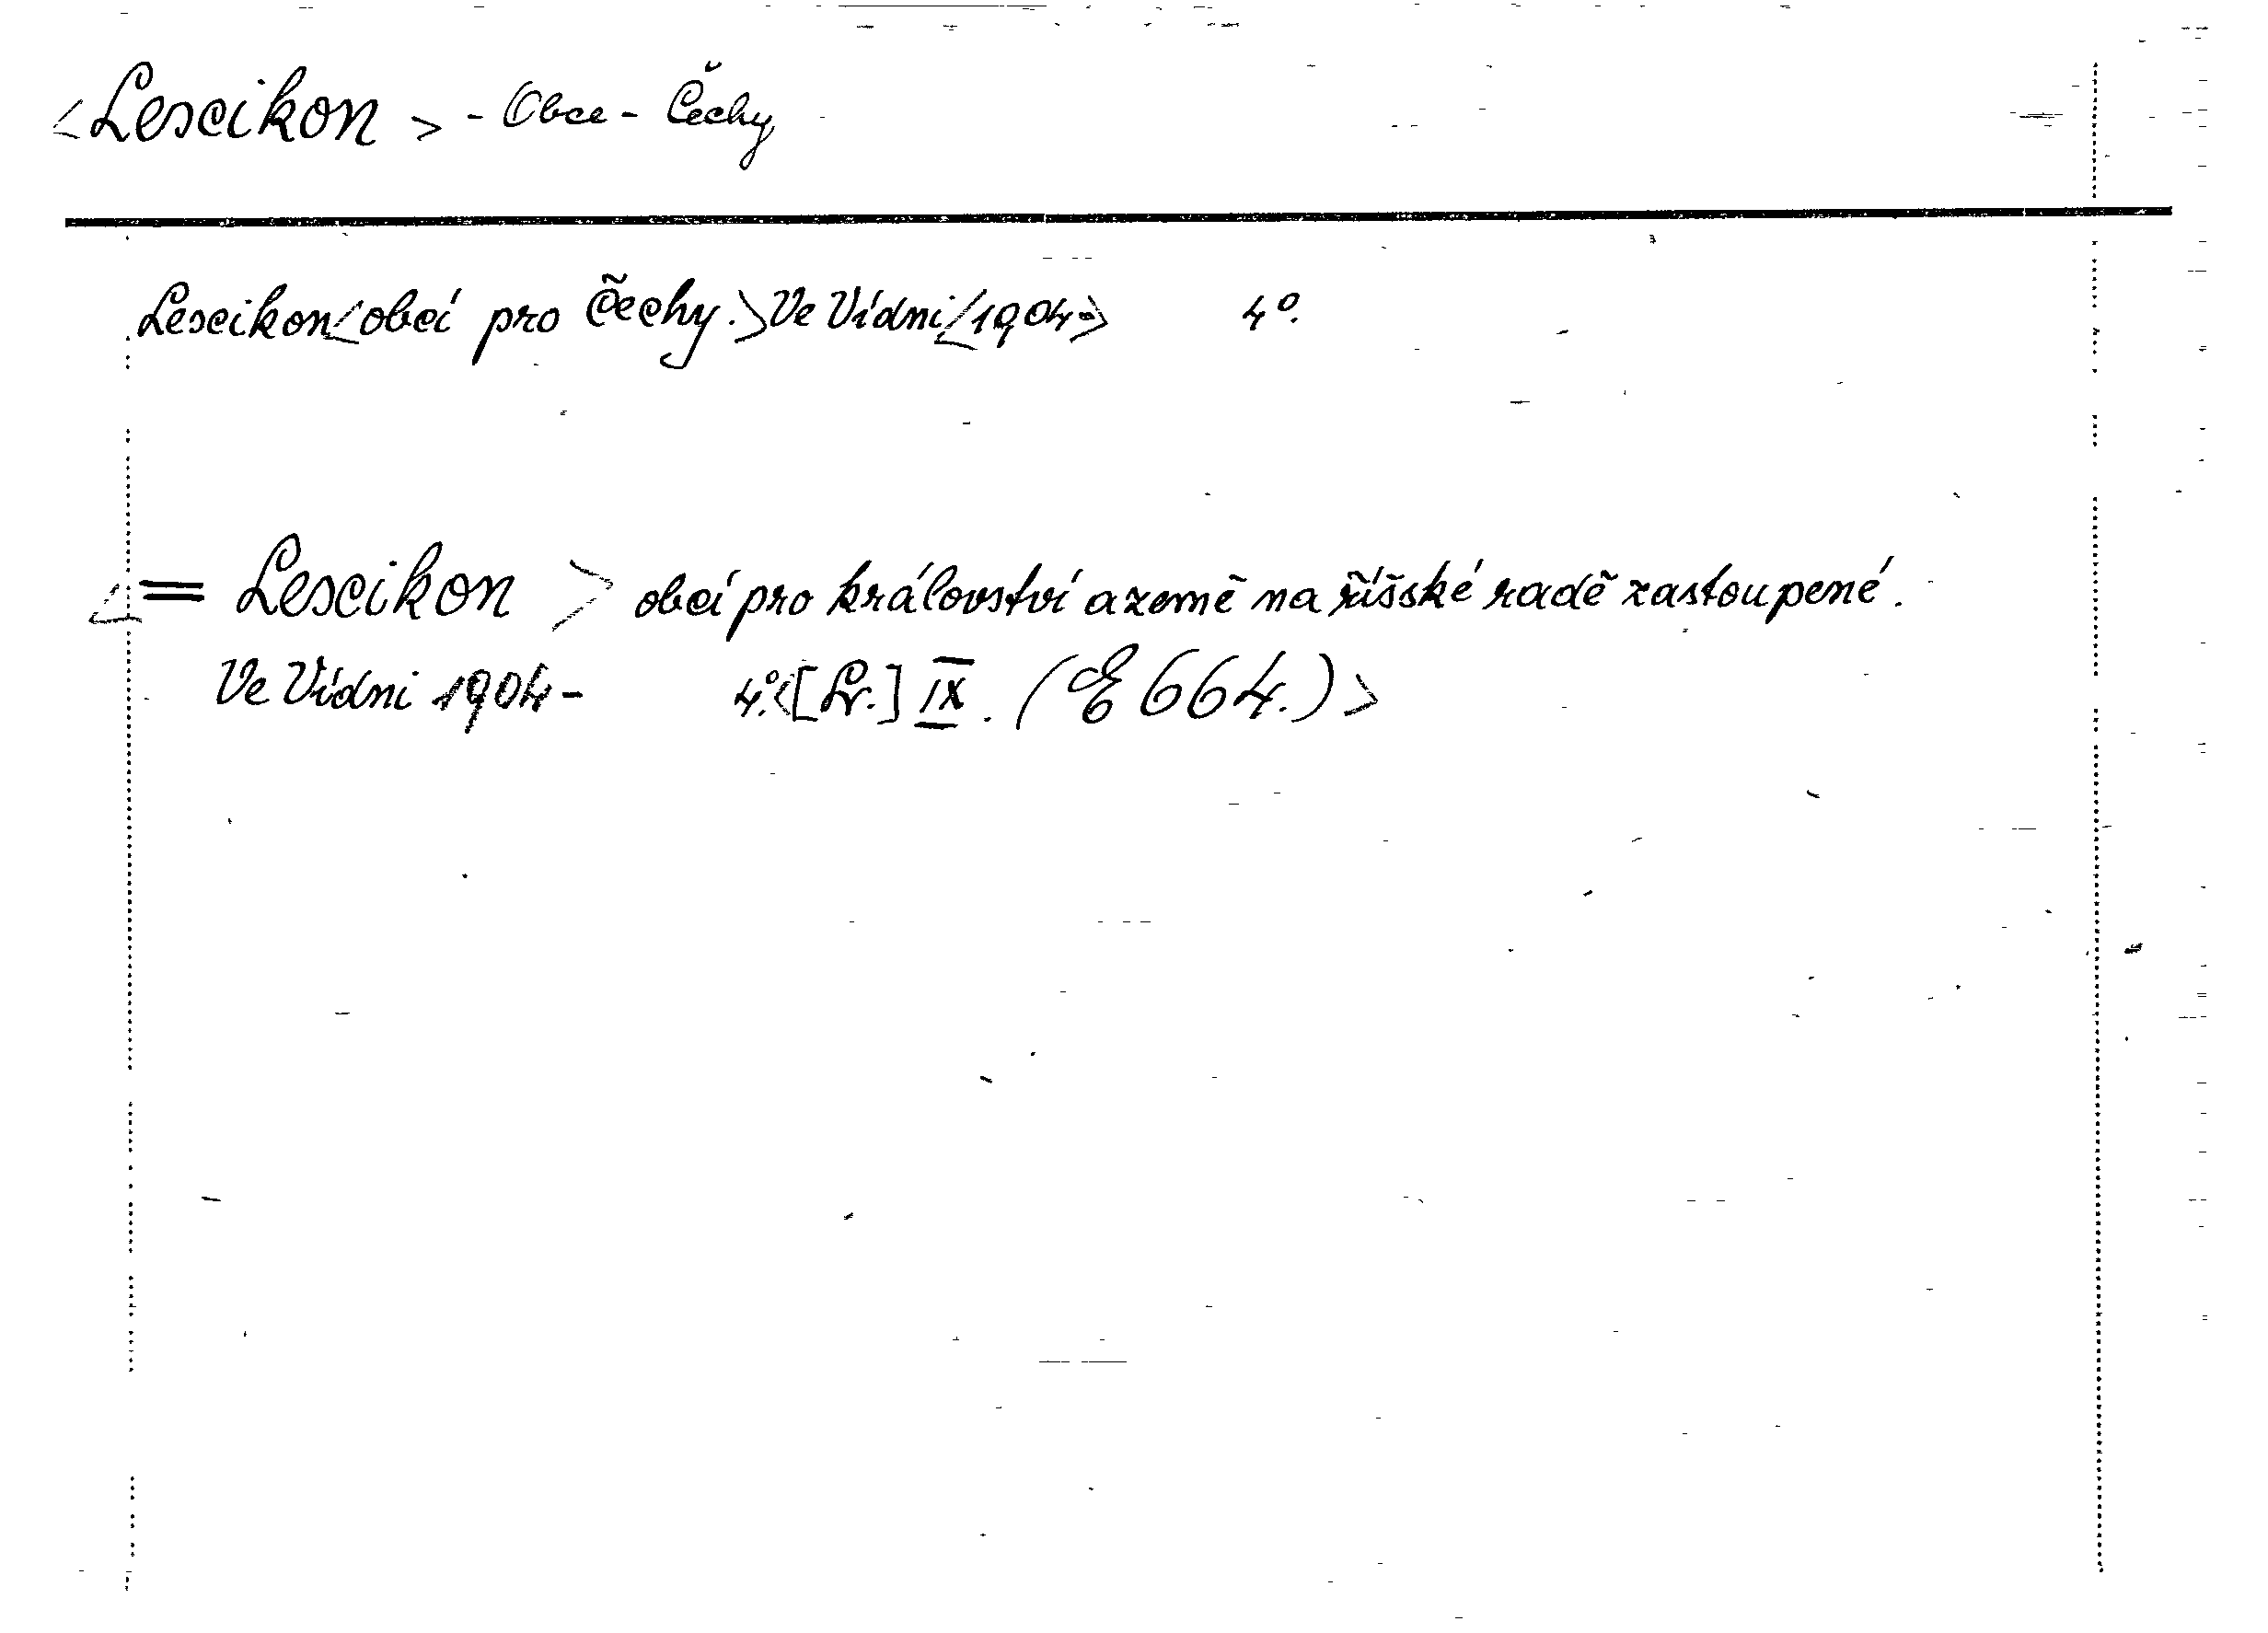 <Lexikon> - Obce - Čechy
Lexikon<obcí pro Čechy.>Ve Vídni<1904-> 4°.
<= Lexikon > obcí pro království a země na říšské radě zastoupené.
Ve Vídni 1904- 4°.<[Lr.] IX. (E 664.)>